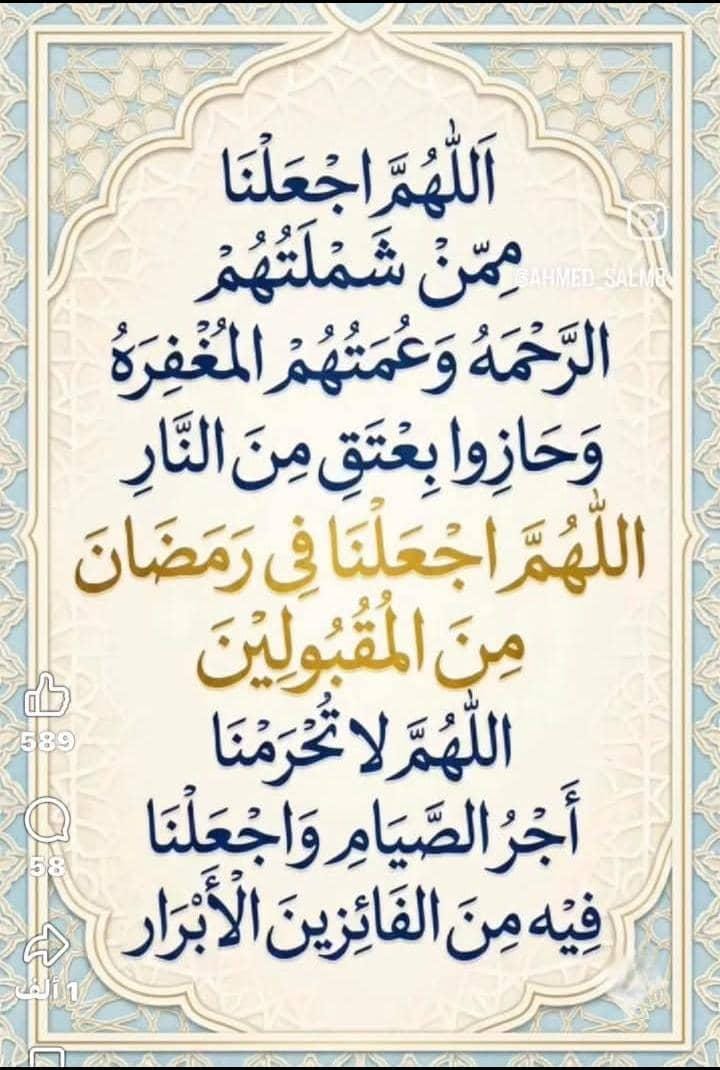 اَللّٰهُمَّ اجْعَلْنَا
مِمّنْ شَمْلَتُهُمْ
الرَّحْمَهُ وَعُمَتُهُمْ المُغْفِرَهُ
وَحَازِوا بِعْتَقِ مِنَ النَّارِ
اللّٰهُمَّ اجْعَلْنَا فِى رَمَضَانَ
مِنَ المُقُبُولِيْنَ
اللّٰهُمَّ لا تُحْرَمْنَا
أَجْرُ الصَّيَامِ وَاجْعَلْنَا
فِيْه مِنَ الفَائِزِينَ الْأَبْرَار
@AHMED_SALMR
589
58
1 ألف